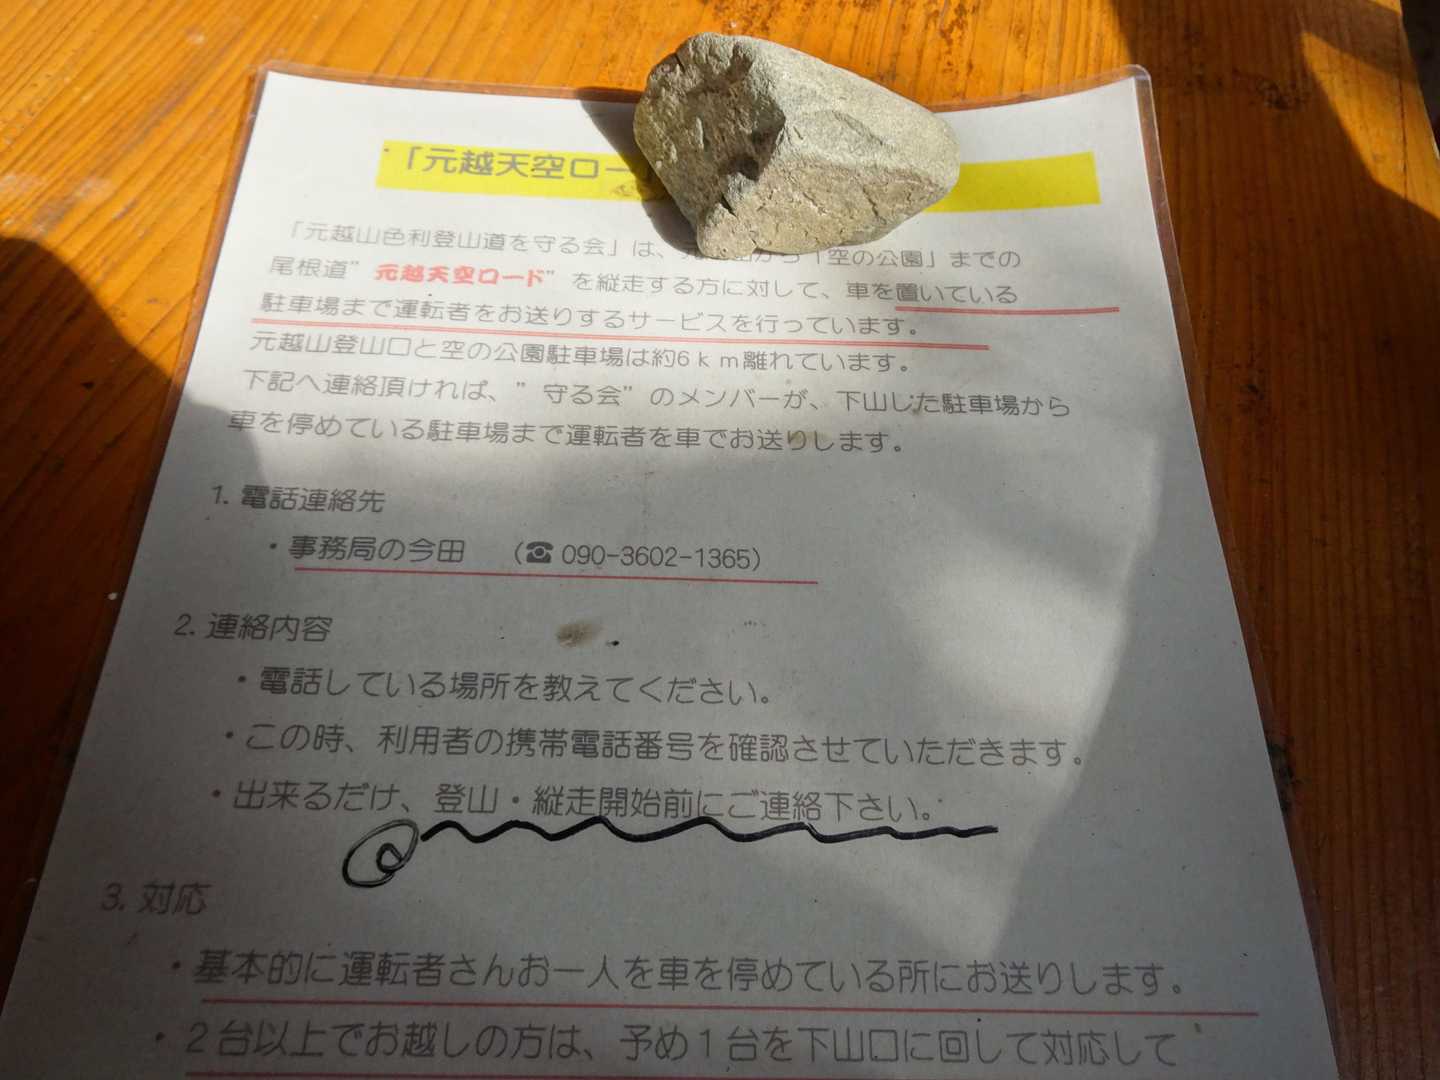 「元越天空ロー
「元越山色利登山道を守る会」は、 「空の公園」までの
尾根道”元越天空ロード”を縦走する方に対して、車を置いている
駐車場まで運転者をお送りするサービスを行っています。
元越山登山口と空の公園駐車場は約6km離れています。
下記へ連絡頂ければ、”守る会”のメンバーが、下山した駐車場から
車を停めている駐車場まで運転者を車でお送りします。
1. 電話連絡先
・事務局の今田 (☎090-3602-1365)
2. 連絡内容
・電話している場所を教えてください。
・この時、利用者の携帯電話番号を確認させていただきます。
・出来るだけ、登山・縦走開始前にご連絡下さい。
3. 対応
・基本的に運転者さんお一人を車を停めている所にお送りします。
・2台以上でお越しの方は、予め1台を下山口に回して対応して